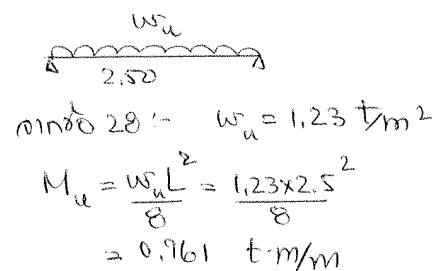 wᵤ
2.50
จากข้อ 28 :- wᵤ = 1.23 t/m²
Mᵤ = wᵤL²/8 = 1.23×2.5²/8
= 0.961 t-m/m